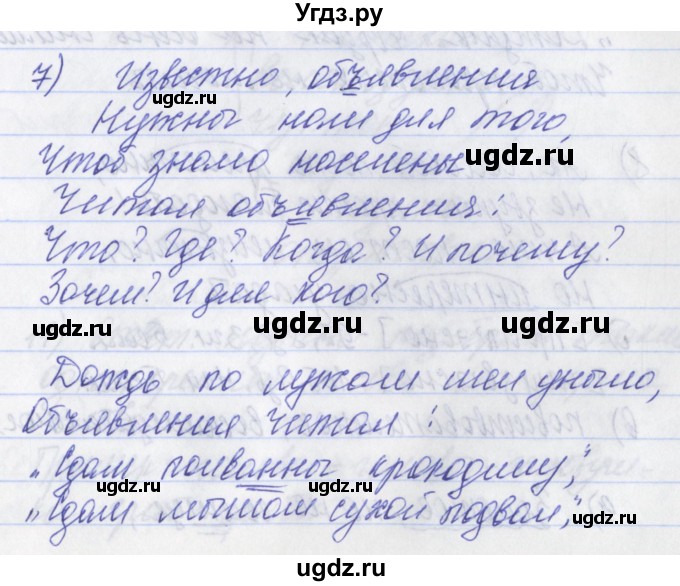 Угдз.ру
7) Известно, объявления
Нужны нам для того,
Чтоб знало население
Читая объявления:
Что? Где? Когда? И почему?
Зачем? И для кого?
Дождь по лужам шел уныло,
Объявления читал:
"Сдам полванны крокодилу",
"Сдам мышам сухой подвал",
ugdz.ru
ugdz.ru
ugdz.ru
ugdz.ru
ugdz.ru
ugdz.ru
ugdz.ru
ugdz.ru
ugdz.ru
ugdz.ru
ugdz.ru
ugdz.ru